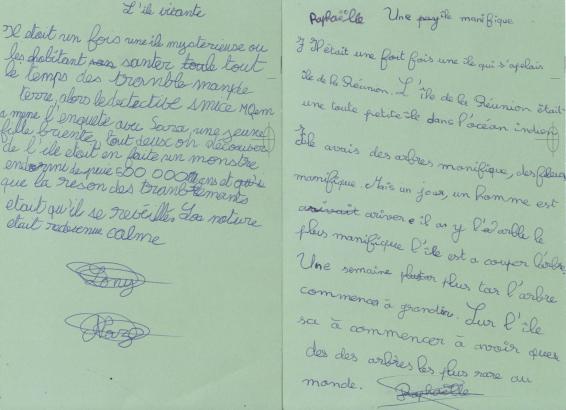 L'ile vivante
Il était un fois une ile mystérieuse ou
les habitant santer tout
le temps des tramble manxe
terre, alors le detective smice
a mené l'enquete avec Sara, une jeune
fille briente, tout deux on découvers
de l'ile etait en faite un monstre
endormi depuie 600 000 ans et
que la reson des tremblements
etait qu'il se reveilles Las nature
etait redevenue calme
Lony
Raphaëlle Une île manifique
Il était une fort fois une ile qui s'apelais
île de la Réunion. L'île de la Réunion était
une toute petite île dans l'océan indien
Elle avais des arbres manifique, des fleurs
manifique. Mais un jour, un homme est
ariver e il a y l'arble le
plus manifique l'île est a couper l'arbre.
Une semaine plus tar l'arbre
commença à grandire. Sur l'île
sa à commencer à avoir ques
des des arbres les plus rare au
monde. Raphaëlle